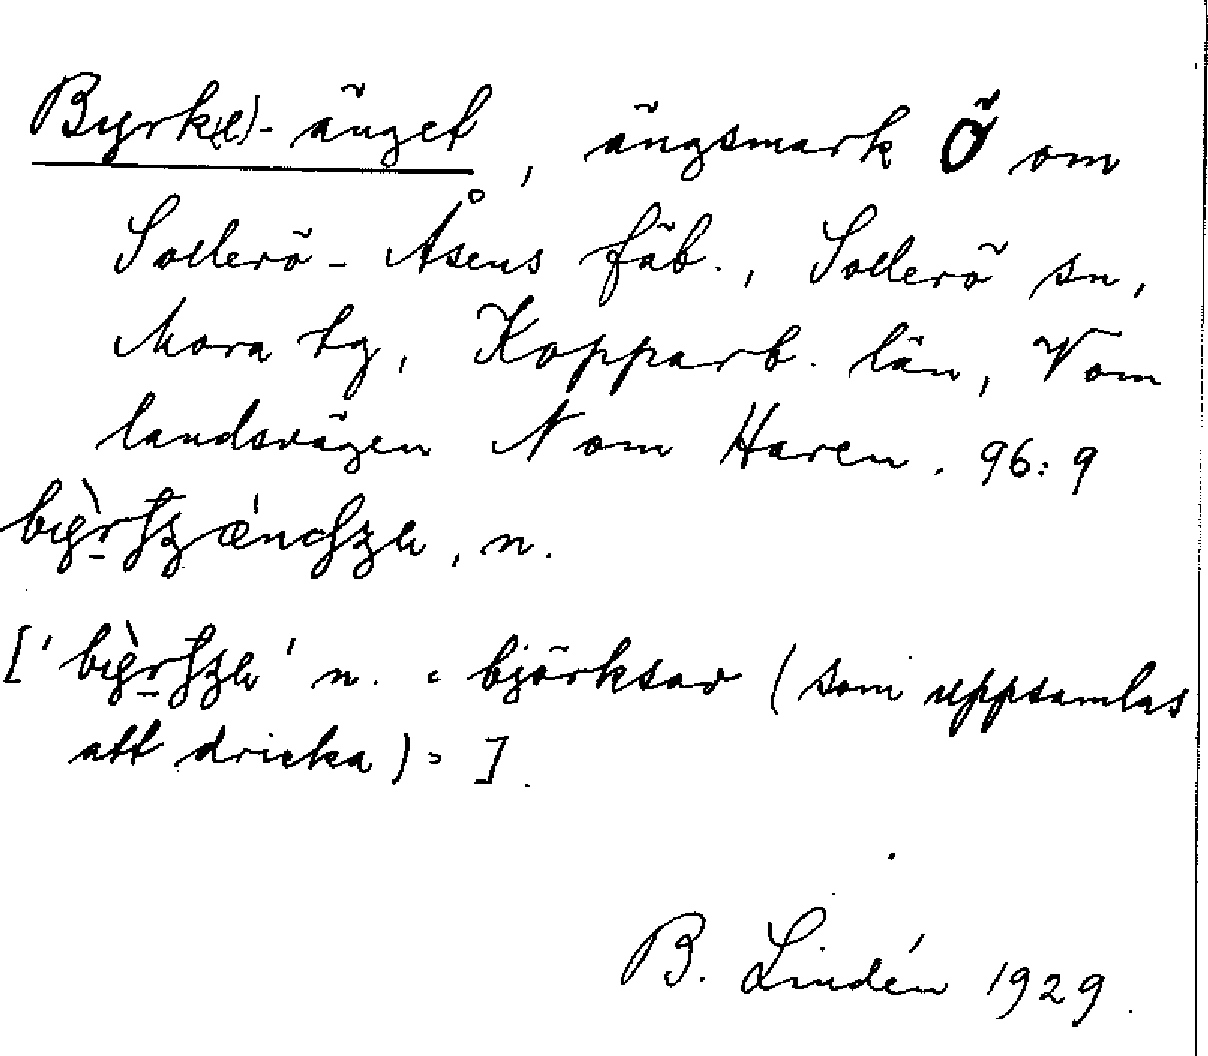 Byrk(e)-änget, ängsmark Ö om
Sollerö-Åsens fäb., Sollerö sn,
Mora tg, Kopparb. län, V om
landsvägen N om Haren. 96:9
, n.
[' ' n. = björksav (som uppsamlas
att dricka) = ].
B. Lindén 1929.